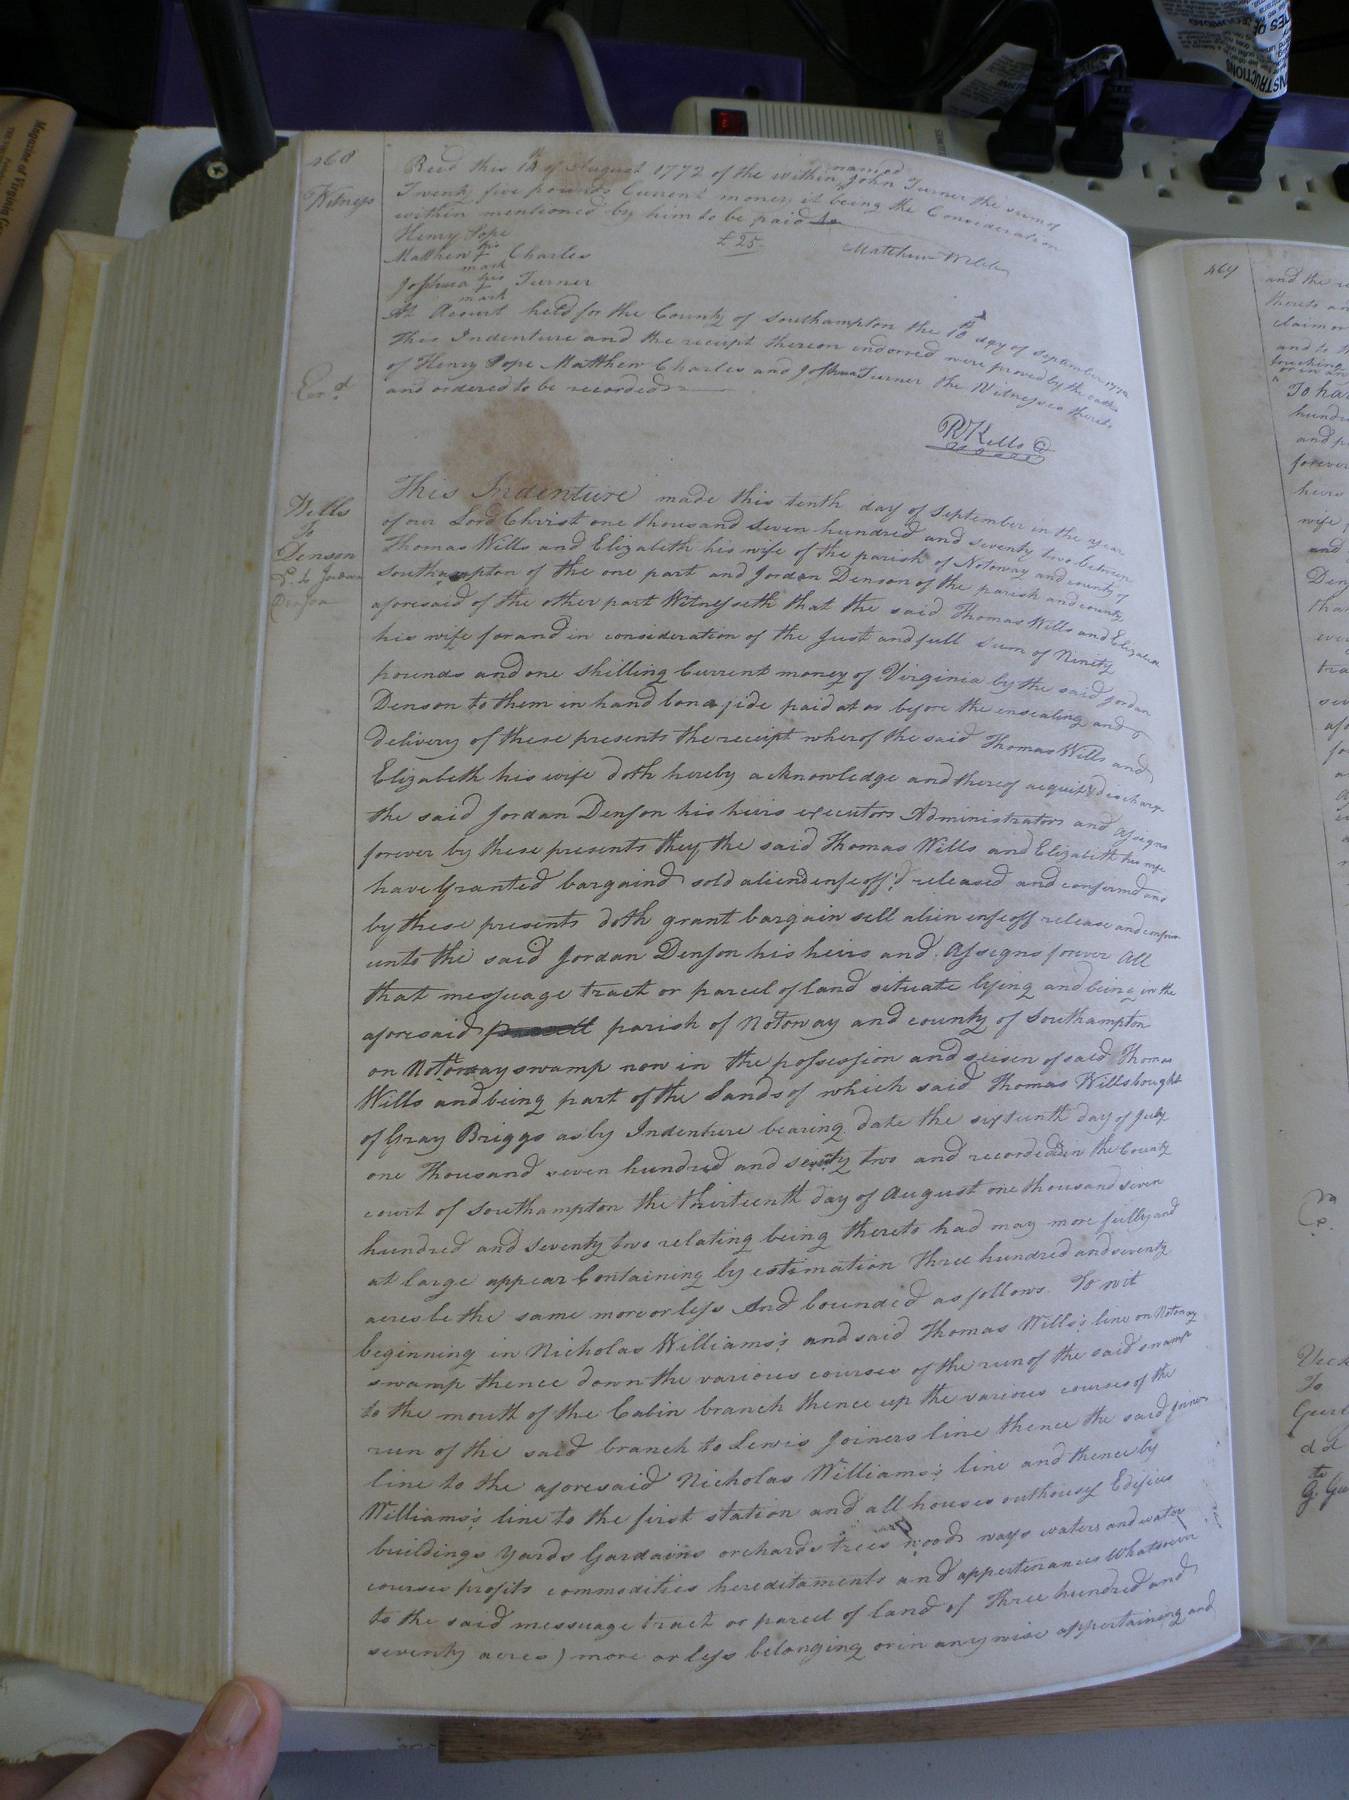 468
Witness
Recd this 13th of August 1772 of the within named John Turner the sum of
Twenty five pounds Current money it being the Consideration
within mentioned by him to be paid
£25.
Henry Pope
Matthew his mark Charles
Joshua his mark Turner
Matthew Wills
At Acourt held for the County of Southampton the 10th day of September 1772
This Indenture and the receipt thereon endorsed were proved by the oaths
of Henry Pope Matthew Charles and Joshua Turner the Witnesses thereto
and ordered to be recorded
Exd
R Kello C
Wills
To
Denson
Dd. to Jordan
Denson
This Indenture made this tenth day of September in the year
of our Lord Christ one thousand seven hundred and seventy two between
Thomas Wills and Elizabeth his wife of the parish of Notoway and county of
Southampton of the one part and Jordan Denson of the parish and county
aforesaid of the other part Witnesseth that the said Thomas Wills and Elizabeth
his wife for and in consideration of the Just and full sum of Ninety
pounds and one shilling Current money of Virginia by the said Jordan
Denson to them in hand bona fide paid at or before the ensealing and
delivery of these presents the receipt wherof the said Thomas Wills and
Elizabeth his wife doth hereby acknowledge and thereof acquit & discharge
the said Jordan Denson his heirs executors Administrators and assigns
forever by these presents they the said Thomas Wills and Elizabeth his wife
have Granted bargaind sold aliend enfeoff'd released and confirmd and
by these presents doth grant bargain sell alien enfeoff release and confirm
unto the said Jordan Denson his heirs and Assigns forever All
that messuage tract or parcel of land situate lying and being in the
aforesaid parish of Notoway and county of Southampton
on Notoway swamp now in the possession and seisen of said Thomas
Wills and being part of the Lands of which said Thomas Wills bought
of Gray Briggs as by Indenture bearing date the sixteenth day of July
one Thousand seven hundred and seventy two and recorded in the County
court of Southampton the thirteenth day of August one thousand seven
hundred and seventy two relating being thereto had may more fully and
at large appear Containing by estimation Three hundred and seventy
acres be the same more or less And bounded as follows To wit
beginning in Nicholas Williams's and said Thomas Wills's line on Notoway
swamp thence down the various courses of the run of the said swamp
to the mouth of the Cabin branch thence up the various courses of the
run of the said branch to Lewis Joiners line thence the said Joiners
line to the aforesaid Nicholas Williams's line and thence by
Williams's line to the first station and all houses outhouses Edifices
buildings yards Gardains orchards trees woods ways waters and water
courses profits commodities hereditaments and appertenances Whatsoever
to the said messuage tract or parcel of land of Three hundred and
seventy acres) more or less belonging or in any wise appertaining and
469
and the
claim or
and to
touching
To ha
hund
and p
forever
heirs
wife
and
Den
tha
tra
To